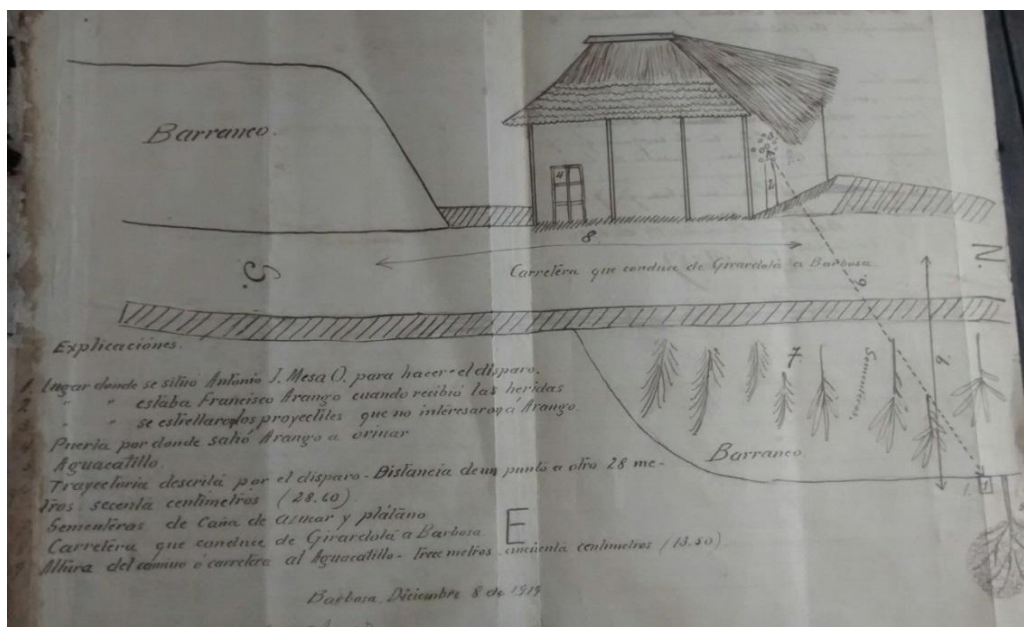 Barranco.
4
2
8.
Carretera que conduce de Girardota a Barbosa
S.
N.
6.
9
7.
Sementeras.
Barranco.
1.
5
Explicaciónes.
1. Lugar donde se situó Antonio J. Mesa O. para hacer el disparo.
" " estaba Francisco Arango cuando recibió las heridas
" " se estrellaron los proyectiles que no interesaron á Arango.
Puerta por donde salió Arango a orinar
Aguacatillo.
Trayectoria descrita por el disparo - Distancia de un punto a otro 28 me-
tros secenta centimetros (28.60)
Sementeras de Caña de azucar y plátano
Carretera que conduce de Girardota a Barbosa
Altura del camino o carretera al Aguacatillo - trece metros cincuenta centimetros (13.50)
E
Barbosa, Diciembre 8 de 1919